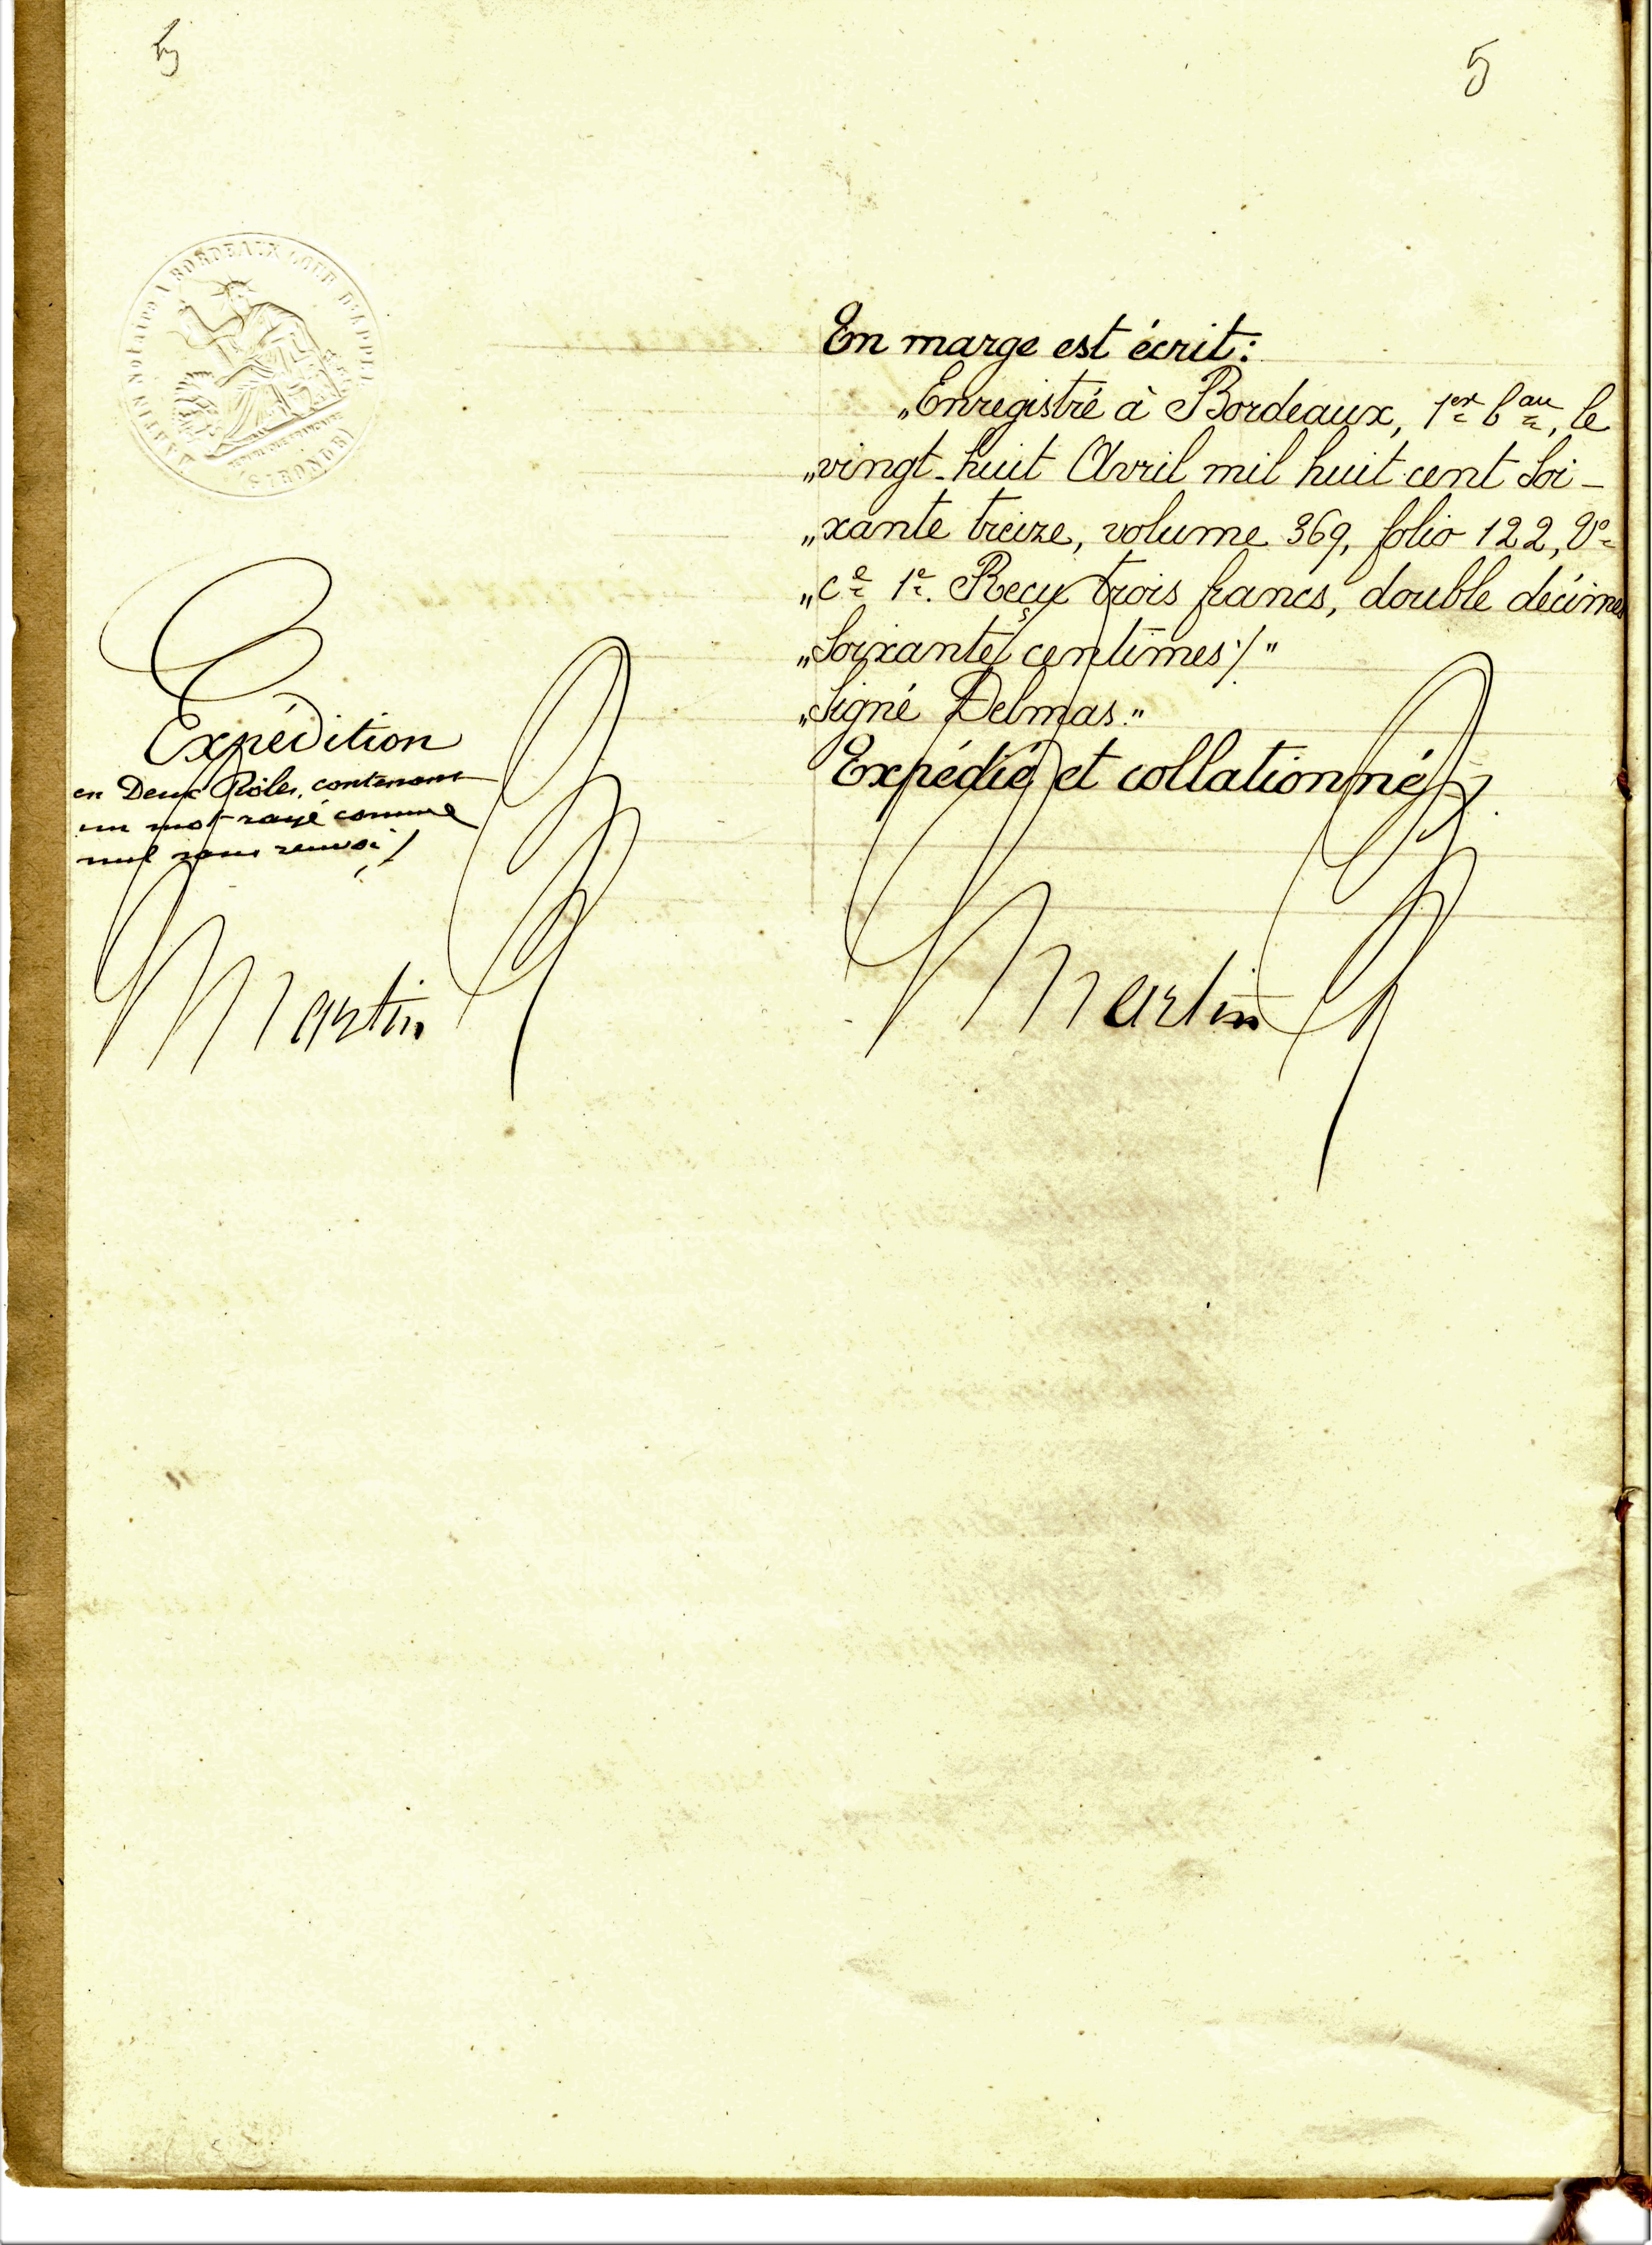 5
5
MARTIN Notaire A BORDEAUX COUR D'APPEL
(GIRONDE)
REPUBLIQUE FRANÇAISE
En marge est écrit:
„Enregistré à Bordeaux, 1er bau, le
„vingt-huit Avril mil huit cent soi-
„xante treize, volume 369, folio 122, Vo
„ce 1e. Reçu trois francs, double décimes
„Soixante centimes ./."
„Signé Delmas."
Expédié et collationné ./.
Martin
Expédition
en Deux Rôles, contenant
un mot rayé comme
nul sans renvoi ./.
Martin